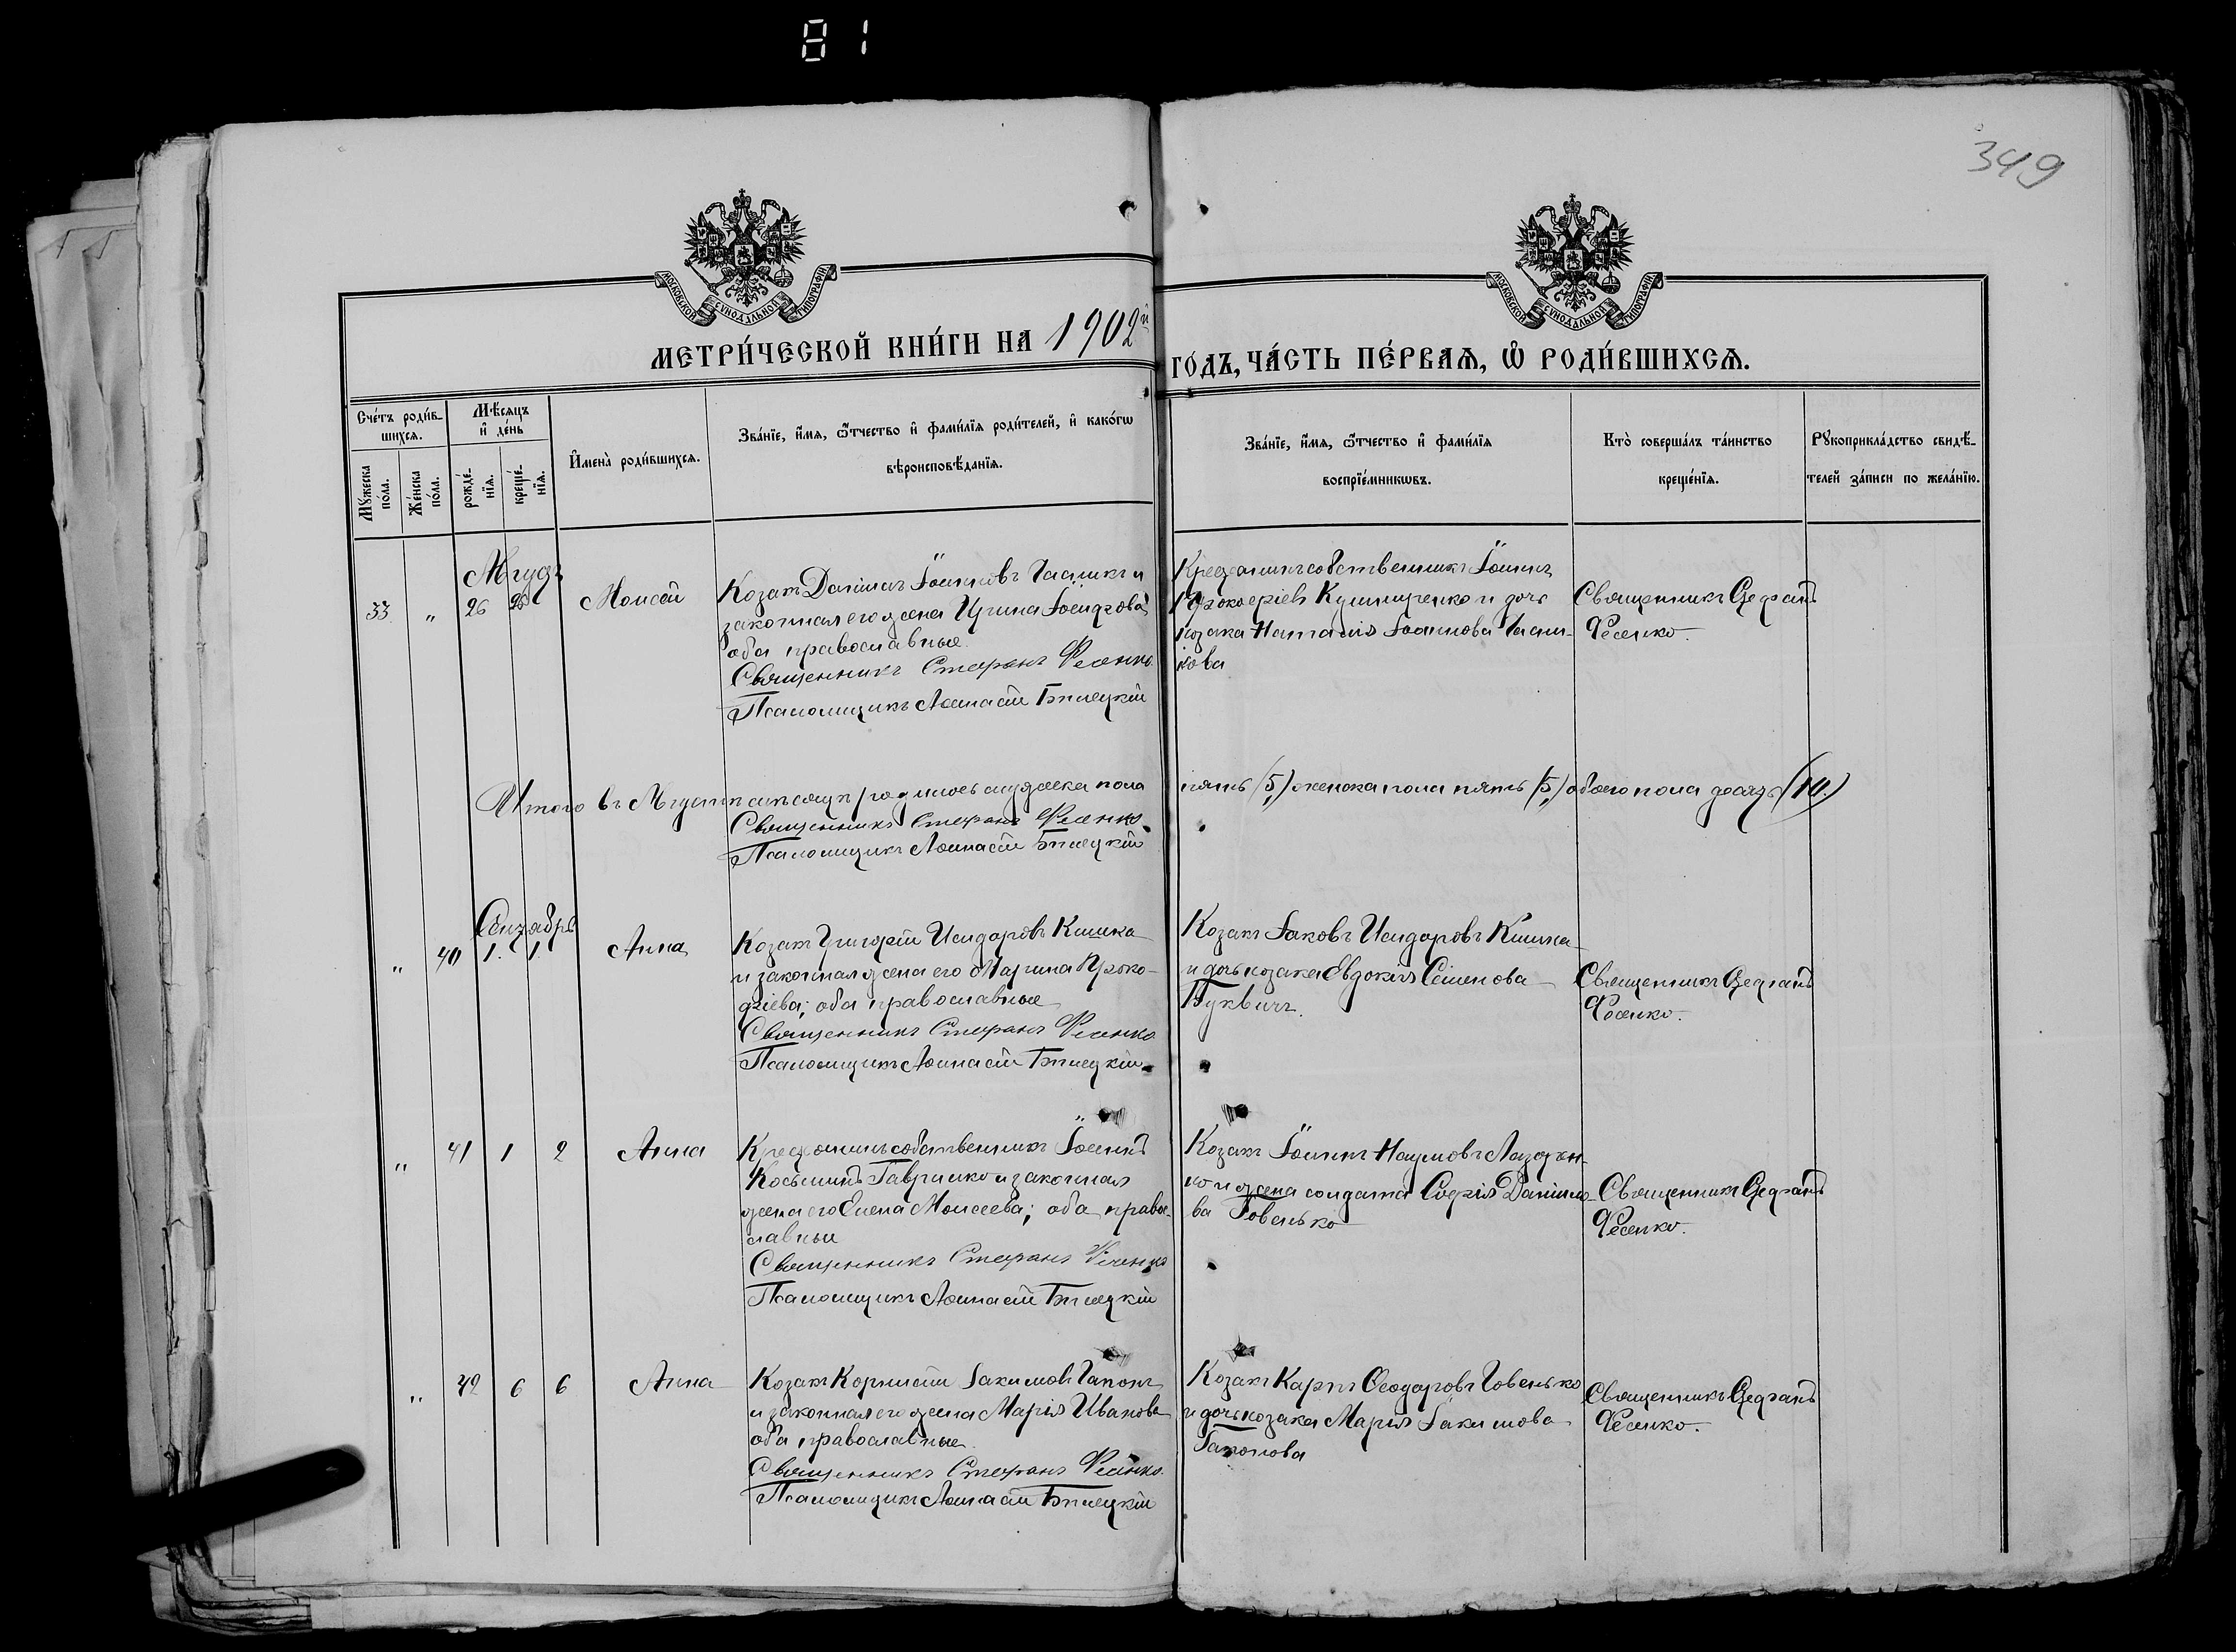 81
349
МОСКОВСКОЙ СУНОДАЛЬНОЙ ТИПОГРАФІИ
МОСКОВСКОЙ СУНОДАЛЬНОЙ ТИПОГРАФІИ
МЕТРИ́ЧЕСКОЙ КНИ́ГИ НА 1902й
ГО́ДЪ, ЧА́СТЬ ПЕ́РВАѦ, Ѡ҆ РОДИ́ВШИХСѦ.
Сче́тъ роди́в-
шихсѧ.
Мꙋжеска по́ла.
Же́нска по́ла.
Мѣ́сѧцъ
и҆ де́нь
рожде́-
нїѧ.
креще́-
нїѧ.
И҆мена̀ роди́вшихсѧ.
Зва́нїе, и҆́мѧ, ѻ҆́тчество и҆ фами́лїѧ роди́телей, и҆ како́гѡ
вѣроисповѣ́данїѧ.
Зва́нїе, и҆́мѧ, ѻ҆́тчество и҆ фами́лїѧ
воспрїе́мникѡвъ.
Кто̀ соверша́лъ та́инство
креще́нїѧ.
Рꙋкоприкла́дство свидѣ́-
телей за́писи по жела́нїю.
Августъ
33 " 26 26 Моисей
Козакъ Даніилъ Іоанновъ и
законная его жена Ирина
оба православные.
Священникъ Стефанъ Фесенко
Псаломщикъ Афанасій Бѣлецкій
Крестьянинъ собственникъ Іоаннъ
Прокопіевъ Кушниренко и дочь
козака Наталія Іоаннова
кова
Священникъ Стефанъ
Фесенко.
Итого въ Августѣ мѣсяцѣ родилось мужеска пола
пять (5) женска пола пять (5) обоего пола десять (10.)
Священникъ Стефанъ Фесенко
Псаломщикъ Афанасій Бѣлецкій
Сентябрь
" 40 1. 1. Анна
Козакъ Григорій Исидоровъ Кишка
и законная жена его Марина Проко-
піева; оба православные
Священникъ Стефанъ Фесенко
Псаломщикъ Афанасій Бѣлецкій
Козакъ Іаковъ Исидоровъ Кишка
и дочь козака Евдокія Сѵменова
Буквичъ.
Священникъ Стефанъ
Фесенко.
" 41 1 2 Анна
Крестьянинъ собственникъ Іоаннъ
Косьминъ Гавришко и законная
жена его Елена Моисеева; оба право-
славные
Священникъ Стефанъ Фесенко
Псаломщикъ Афанасій Бѣлецкій
Козакъ Іоаннъ Наумовъ Лазорен-
ко и жена солдата Софія Даніило-
ва Говенько
Священникъ Стефанъ
Фесенко.
" 42 6 6 Анна
Козакъ Корнилій Іакимовъ Гапонъ
и законная его жена Марія Иванова
оба православные.
Священникъ Стефанъ Фесенко.
Псаломщикъ Афанасій Бѣлецкій
Козакъ Карпъ Ѳеодоровъ Говенько
и дочь козака Марія Іакимова
Гапонова
Священникъ Стефанъ
Фесенко.